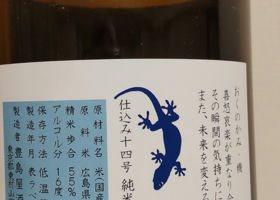 おくのかみ 機
喜怒哀楽が重なり合
その瞬間の気持ちに
また、未来を変える
仕込み十四号 純米
原材料名 米国産
原料米 広島県
精米歩合 55%
アルコール分 16度
保存方法 低温
製造年月 表ラベ
製造者 豊島屋酒
東京都東村山